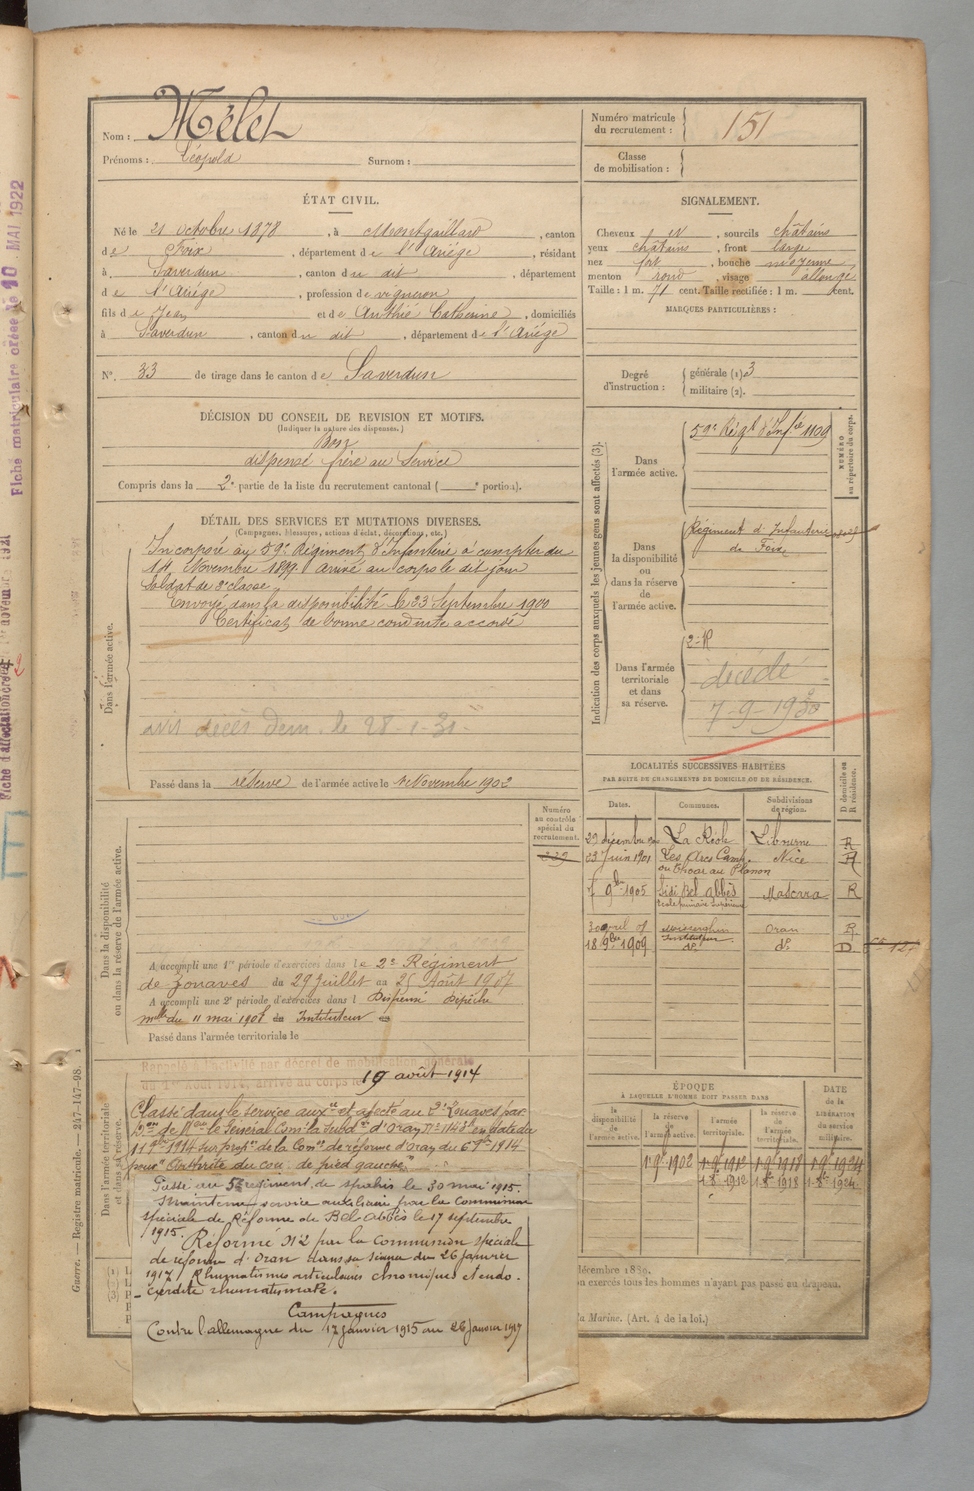 Nom : Mélet
Prénoms : Léopold Surnom :
Numéro matricule du recrutement : 151
Classe de mobilisation :
ÉTAT CIVIL.
Né le 21 octobre 1878, à Montgaillard, canton
de Foix, département de l'Ariège, résidant
à Saverdun, canton du dit, département
de l'Ariège, profession de vigneron
fils de Jean et de Authié Catherine, domiciliés
à Saverdun, canton du dit, département de l'Ariège
N°. 33 de tirage dans le canton de Saverdun
SIGNALEMENT.
Cheveux id, sourcils châtains
yeux châtains, front large
nez fort, bouche moyenne
menton rond, visage allongé
Taille : 1 m. 71 cent. Taille rectifiée : 1 m. cent.
MARQUES PARTICULIÈRES :
Degré d'instruction : générale (1) 3
militaire (2).
DÉCISION DU CONSEIL DE REVISION ET MOTIFS.
(Indiquer la nature des dispenses.)
Bon
dispensé frère au service
Compris dans la 2e partie de la liste du recrutement cantonal ( portion).
DÉTAIL DES SERVICES ET MUTATIONS DIVERSES.
(Campagnes, blessures, actions d'éclat, décorations, etc.)
Dans l'armée active.
Incorporé au 59e Régiment d'Infanterie à compter du
14 Novembre 1899. arrivé au corps le dit jour
soldat de 2e classe
Envoyé dans la disponibilité le 23 Septembre 1900
Certificat de bonne conduite accordé
avis décès dem. le 28-1-31-
Passé dans la réserve de l'armée active le 1er Novembre 1902
Indication des corps auxquels les jeunes gens sont affectés (3).
NUMÉRO au répertoire du corps.
Dans l'armée active.
59e Régt d'Infie 1109
Dans la disponibilité ou dans la réserve de l'armée active.
Régiment d'Infanterie
de Foix
Dans l'armée territoriale et dans sa réserve.
2-R
décédé
7-9-1930
LOCALITÉS SUCCESSIVES HABITÉES
PAR SUITE DE CHANGEMENTS DE DOMICILE OU DE RÉSIDENCE.
Dates. Communes. Subdivisions de région. D domicile ou R résidence.
29 décembre La Réole Libourne R
23 Juin 1901 Les Arcs Nice R
9bre 1905 Sidi Bel Abbès Mascara R
École primaire supérieure
Misserghin Oran R
Instituteur
18 9bre 1909 do do D
Numéro au contrôle spécial du recrutement.
Dans la disponibilité ou dans la réserve de l'armée active.
A accompli une 1re période d'exercices dans le 2e Régiment
de Zouaves du 29 juillet au 25 Août 1907
A accompli une 2e période d'exercices dans l Dispensé Dépêche
mlle du 11 mai 1908 Instituteur
Passé dans l'armée territoriale le
Dans l'armée territoriale et dans sa réserve.
Rappelé à l'activité par décret de mobilisation générale
du 1er Août 1914, arrivé au corps le 19 août 1914
Classé dans le service auxre et affecté au 2e Zouaves par
Don de Mr le Général Comt la Subdon d'Oran en date du
11 9bre 1914 sur propon de la Comon de réforme d'Oran du 6 9bre 1914
pour "Arthrite du cou de pied gauche"
Passé au régiment de spahis le 30 mai 1915.
Maintenu service auxiliaire par la Commission
spéciale de Réforme de Bel Abbès le 17 septembre
1915. Réformé N°2 par la Commission spéciale
de réforme d'Oran dans sa séance du 26 janvier
1917 Rhumatismes articulaires chroniques et endo-
cardite rhumatismale.
Campagnes
Contre l'allemagne du 17 janvier 1915 au 26 Janvier 1917
ÉPOQUE
À LAQUELLE L'HOMME DOIT PASSER DANS
la disponibilité de l'armée active. la réserve de l'armée active. l'armée territoriale. la réserve de l'armée territoriale.
DATE de la LIBÉRATION du service militaire.
1er 9bre 1902 1er 9bre 1912 1er 9bre 1918 1er 9bre 1924
1 8bre 1912 1 8bre 1918 1 8bre 1924
décembre 1889.
on exercés tous les hommes n'ayant pas passé au drapeau.
la Marine. (Art. 4 de la loi.)
Guerre. — Registre matricule. — 247-147-98.
Fiche matriculaire créée le 10 MAI 1922